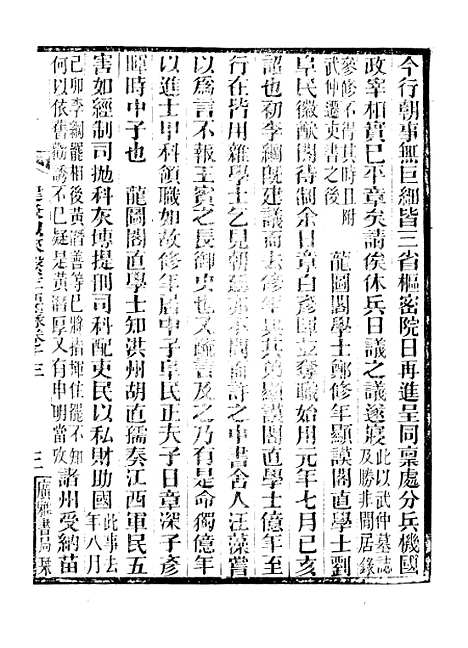 今行朝事無巨細皆三省樞密院日再進呈同稟處分兵機國
政宰相實已平章矣請俟休兵日議之議遂寢此以武仲墓誌及勝非閒居錄
參修不得其時且附武仲遷吏書之後 龍圖閣學士鄭修年顯謨閣直學士劉
阜民徽猷閣待制余日章白彥暉並奪職始用元年七月己亥
詔也初李綱既建議而去鄭億年以顯謨閣直學士億年
行在皆用雜學士乞見朝廷亦不問而許之中書舍人汪藻嘗
以為言不報王賓之長御史也又疏言及之乃有是命獨億年
以進士甲科領職如故修年居中子阜民正夫子日章深子彥
暉時中子也 龍圖閣直學士知洪州胡直孺奏江西軍民五
害如經制司拋科灰塼提刑司科配吏民以私財助國此事去年八月
己卯李綱罷相後黃潛善等已將指揮住罷不知何以依舊勸誘不已疑是黃潛厚又有申明當攷 諸州受納苗
廣雅書局栞